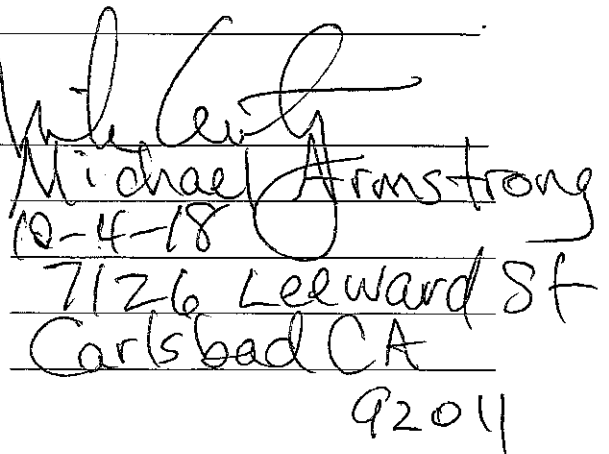 Michael Armstrong
10-4-18
7126 Leeward St
Carlsbad CA
92011